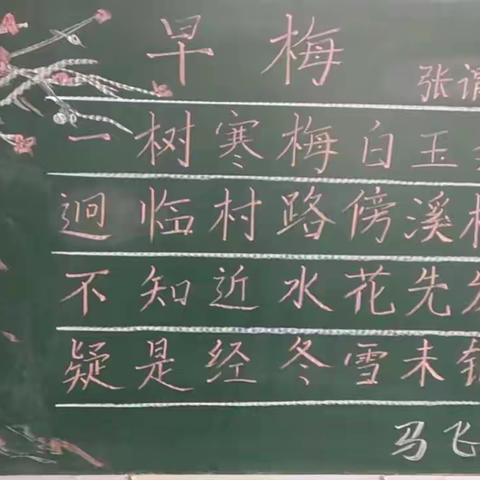 早梅
张谓
一树寒梅白玉
迥临村路傍溪桥
不知近水花先发
疑是经冬雪未销
马飞